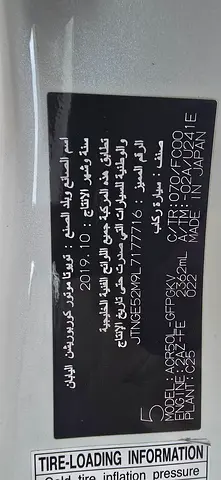 اسم الصانع وبلد الصنع : تويوتا موتور كوربوريشن اليابان
سنة وشهر الانتاج : 2019.10
تطابق هذه المركبة جميع اللوائح الفنية الخليجية
والوطنية للسيارات التي صدرت حتى تاريخ الإنتاج
الرقم المميز : JTNGE52M9L7177716
صنف : سيارة ركاب
5
MODEL: ACR50L-GFPGKV C/TR:070/FC00
ENGINE: 2AZ-FE 2362mL A/TM:-02A/U241E
PLANT: C25 022 MADE IN JAPAN
TIRE-LOADING INFORMATION
Cold tire inflation pressure